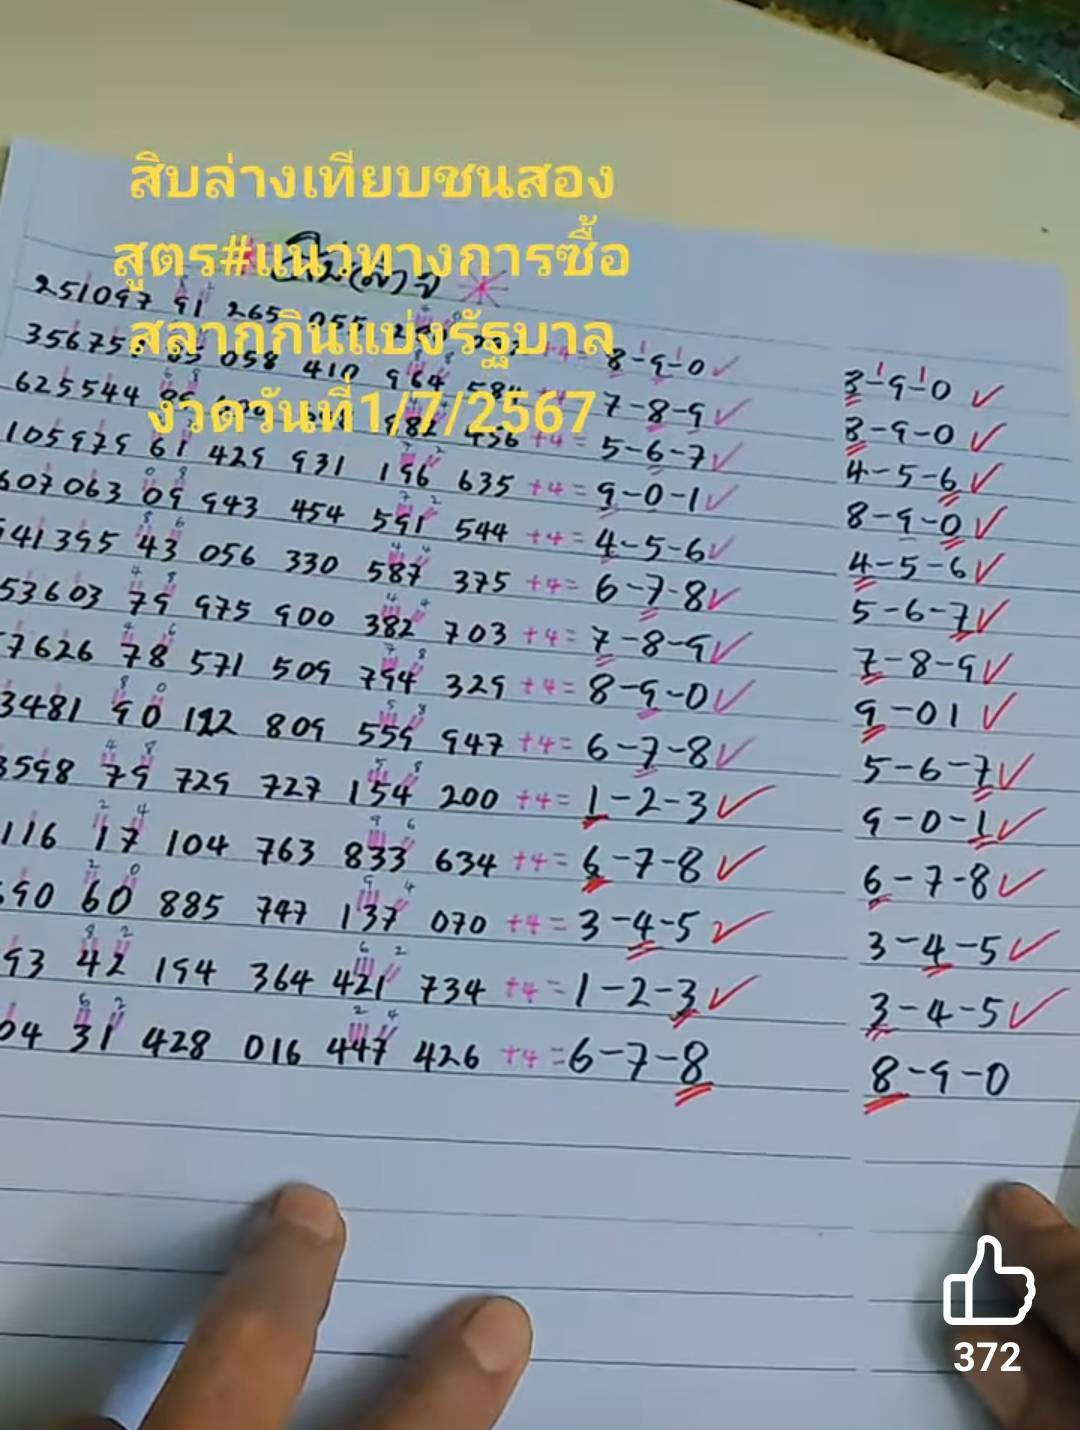 สิบล่างเทียบชนสอง
สูตร#แนวทางการซื้อ
สลากกินแบ่งรัฐบาล
งวดวันที่1/7/2567
251097 91 265 +4= 8-9-0 3-9-0
058 410 964 584 7-8-9 8-9-0
625544 982 456 +4= 5-6-7 4-5-6
105979 61 429 931 196 635 +4= 9-0-1 8-9-0
607063 09 943 454 591 544 +4= 4-5-6 4-5-6
41395 43 056 330 587 375 +4= 6-7-8 5-6-7
53603 79 975 900 382 703 +4= 7-8-9 7-8-9
7626 78 571 509 794 329 +4= 8-9-0 9-01
3481 90 192 809 559 947 +4= 6-7-8 5-6-7
3598 79 729 727 154 200 +4= 1-2-3 9-0-1
116 17 104 763 833 634 +4= 6-7-8 6-7-8
90 60 885 747 137 070 +4= 3-4-5 3-4-5
93 42 194 364 421 734 +4= 1-2-3 3-4-5
04 31 428 016 447 426 +4= 6-7-8 8-9-0
372